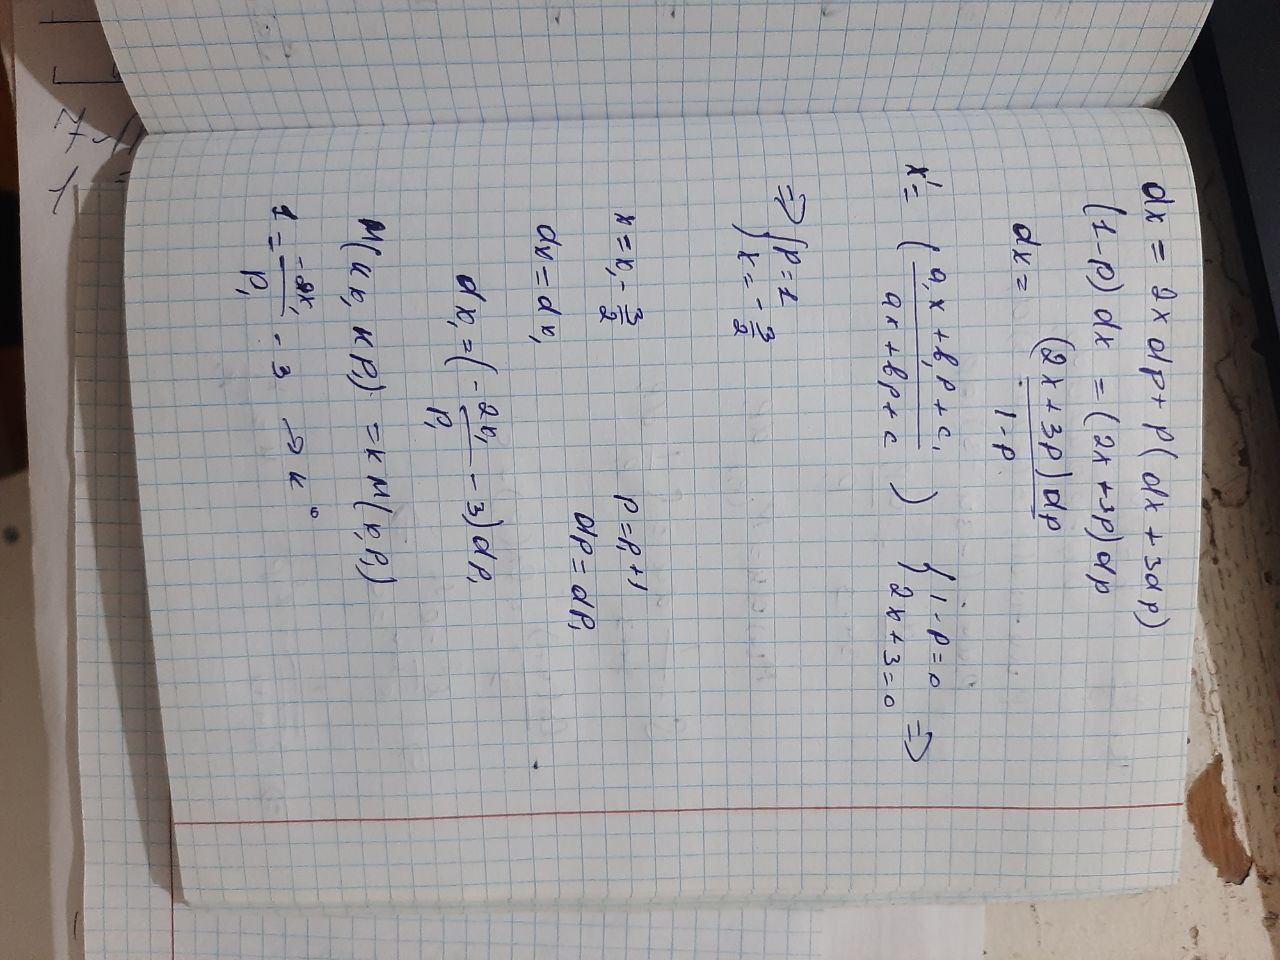 dx = 2x dp + p(dx + 3dp)
(1-p) dx = (2x + 3p) dp
dx = (2x + 3p) dp / 1-p
x' = (a₁x + b₁p + c₁ / ax + bp + c) { 1-p=0 2x+3=0 ⇒
⇒ { p=1 x = -3/2
x = x₁ - 3/2 p = p₁ + 1
dx = dx₁ dp = dp₁
dx₁ = (-2x₁/p₁ - 3) dp₁
M(kx₁ kp₁) = k M(x₁ p₁)
1 = -2x₁/p₁ - 3 → k⁰